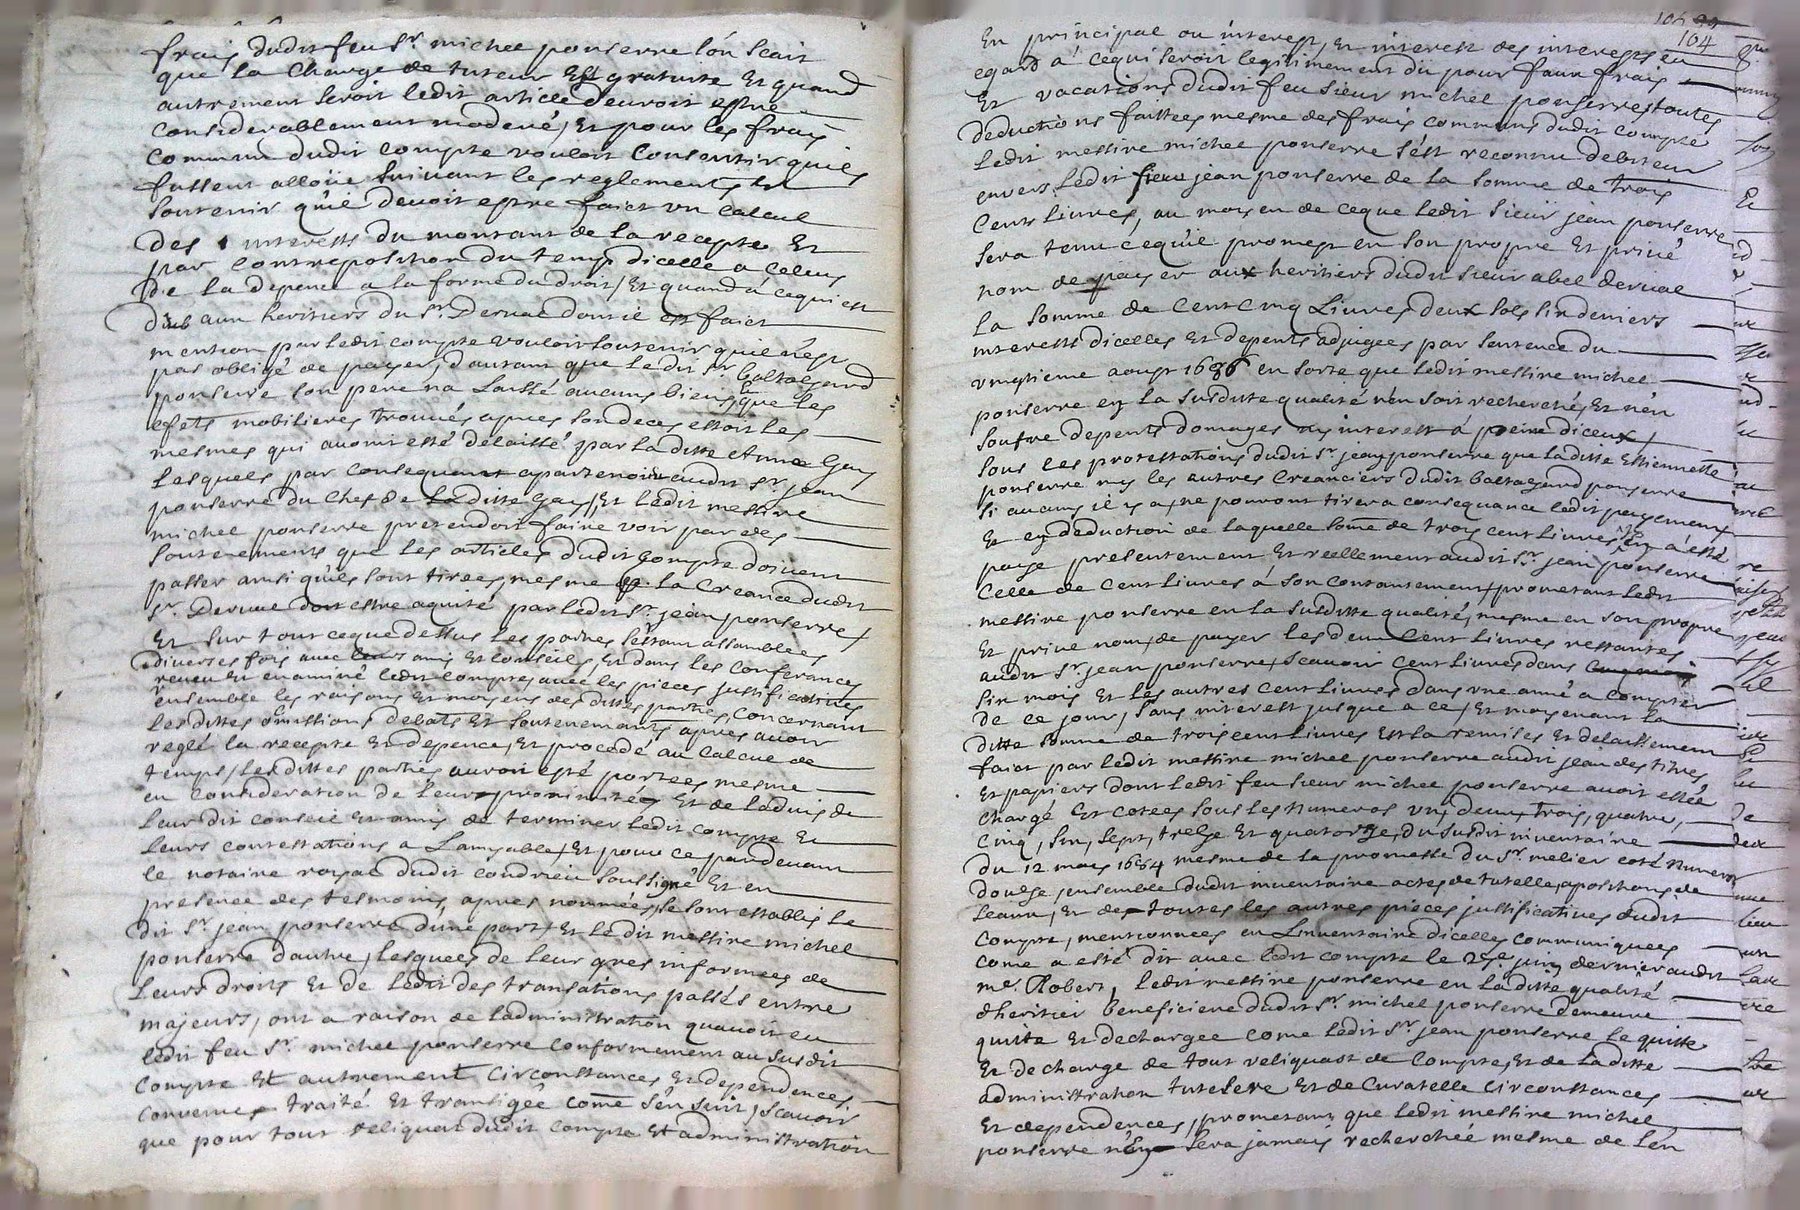 frais dudit feu Sr. michel ponserre l'on scait
que la charge de tuteur Est gratuite Et quand
autrement seroit ledit article devroit estre
considerablement moderé, Et pour les frais
communs dudit compte vouloit consentir quils
fussent alloüe suivant les reglements Et
soutenir qu'il devoit estre faict vn calcul
des interests du montant de la recepte Et
par contreposition du temps dicelle a celuy
de la depence a la forme du droit / Et quand à cequi est
deub aux heritiers du Sr. Dervue dont il est faict
mention par ledit compte vouloir soutenir quil nest
pas obligé de payer, dautant que ledit Sr. baltazard
ponserre son pere na laissé aucuns biens, que les
efets mobilieres trouvés apres son deces estoit les
mesmes qui avoint esté delaissé par laditte Anne Gay
lesquels par consequant apartenoit audit Sr. jean
ponserre du chef de laditte Gay, Et ledit messire
michel ponserre pretendoit faire voir par des
soutenements que les articles dudit compte doivent
passer ainsi quils sont tirees mesme la creance dudit
Sr. Dervue doit estre aquité par ledit Sr. jean ponserre /
Et sur tout ceque dessus les parties s'estant assemblees
diverses fois avec leurs amis Et conseils, Et dans les conferances
reveu Et examiné ledit compte, avec les pieces justificatives
ensemble les raisons Et moyens des dittes parties, concernant
lesdittes omissions debats Et soutenements apres avoir
reglé la recepte Et depence, Et procedé au calcul de
temps / les dittes parties auroit esté portees mesme
en consideration de leur proximité Et de ladvis de
leur dit conseil Et amis de terminer ledit compte Et
leurs contestations a Lamyable, Et pour ce pardevant
le notaire royal dudit condrieu soussigné Et en
presence des tesmoins apres nommés, se sont establis le
dit Sr. jean ponserre d'une part, Et ledit messire michel
ponserre dautre, lesquels de leur gres informees de
leurs droits Et de ledit des transations passés entre
majeurs, ont a raison de ladministration quavoit eu
ledit feu Sr. michel ponserre conformement au susdit
compte Et autrement circonstances Et dependences
convenus traité Et transigée come s'en suit, scavoir
que pour tout reliquat dudit compte Et administration
104
En principal ou interest, Et interest des interests eu
egard à cequi seroit legitimement dü pour faux frais
Et vacations dudit feu sieur michel ponserre, toutes
deductions faittes mesme des frais communs dudit compte
ledit messire michel ponserre s'est reconnu debiteur
envers ledit sieur jean ponserre de la somme de trois
cents livres, au moyen de ceque ledit sieur jean ponserre
sera tenu cequ'il promest en son propre Et privé
nom de payer aux heritiers dudit sieur abel dervue
la somme de cent cinq Livres deux sols six deniers
interests dicelles Et depents adjugees par sentence du
vingtieme aoust 1686 en sorte que ledit messire michel
ponserre en la susditte qualité n'en soit recherchés, Et n'en
soufre depents domages nis interest à peine diceux /
sous les protestations dudit Sr. jean ponserre que laditte Estiennette
ponserre nys les autres creanciers dudit baltazard ponserre
si aucuns il y a, ne pouront tirer a consequance ledit payement
Et en deduction de laquelle some de trois cent livres, en a esté
paye presentement Et reellement audit Sr. jean ponserre
celle de cent livres à son contantement, prometant ledit
messire ponserre en la susditte qualité, mesme en son propre
Et privé nom, de payer les deux cent livres restantes
audit Sr. jean ponserre, scavoir cent livres dans
six mois Et les autres cent livres dans vne anné a compter
de ce jour, sans interest jusque a ce, Et moyenant la
ditte somme de trois cent livres Est la remises Et delaissement
faict par ledit messire michel ponserre audit jean des titres
Et papiers dont ledit feu sieur michel ponserre avoit estée
chargé Et cotees sous les numeros vn, deux, trois, quatre,
cinq, six, sept, treize Et quatorze, du susdit inventaire
du 12 mars 1654 mesme de la promesse du Sr. melier coté numero
douze, ensemble dudit inventaire actes de tutelle, apositions de
seaux, Et de toutes les autres pieces justificatives dudit
compte, mentionnees en Linventaire dicelles communiquees
come a esté dit avec ledit compte le 25e juin dernier audit
me. Robert, ledit messire ponserre en laditte qualité
dheritier beneficiere dudit Sr. michel ponserre demeure
quitte Et dechargee come ledit Sr. jean ponserre le quitte
Et decharge de tout reliquast de compte, Et de laditte
administration tutelere Et de curatelle circonstances
Et dependences, prometant que ledit messire michel
ponserre n'en sera jamais recherchée mesme de l'en